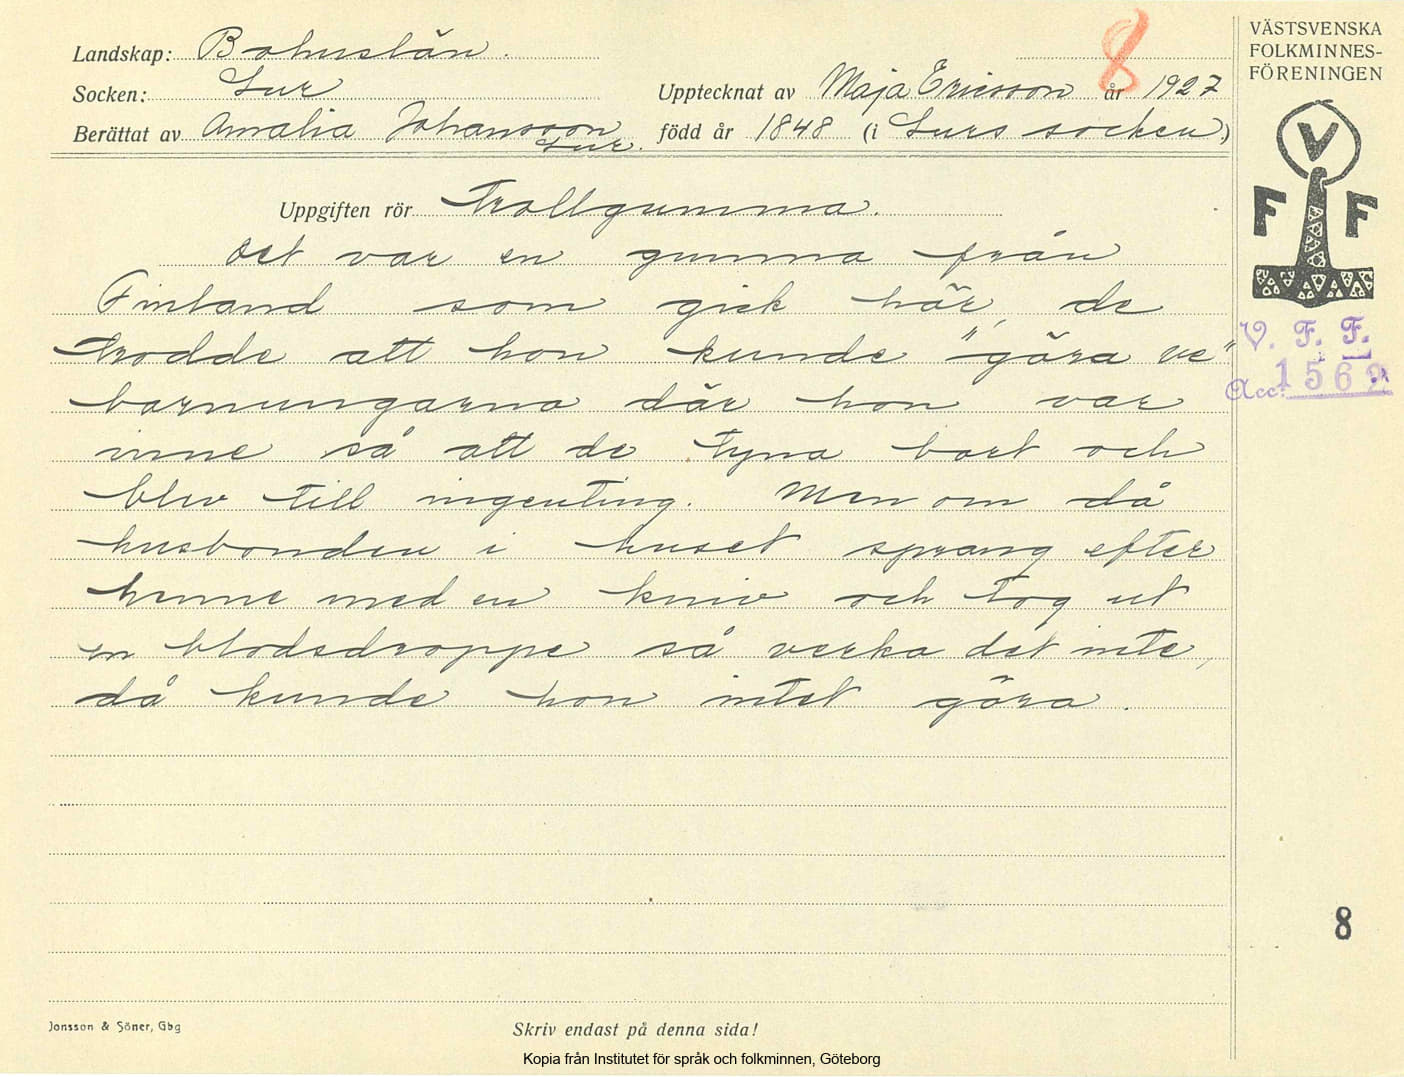 8
VÄSTSVENSKA
FOLKMINNES-
FÖRENINGEN
Landskap: Bohuslän.
Socken: Lur
Upptecknat av Maja Ericsson år 1927
Berättat av Amalia Johansson Lur.
född år 1848 (i Lurs socken)
V
F F
Uppgiften rör Trollgumma.
Det var en gumma från
Finland som gick här, de
trodde att hon kunde "göra ve"
barnungarna där hon var
inne så att de tyna bort och
blev till ingenting. Men om då
husbonden i huset sprang efter
henne med en kniv och tog ut
en blodsdroppe så verka det inte,
då kunde hon intet göra.
V. F. F.
Acc. 1569
8
Jonsson & Söner, Gbg
Skriv endast på denna sida!
Kopia från Institutet för språk och folkminnen, Göteborg